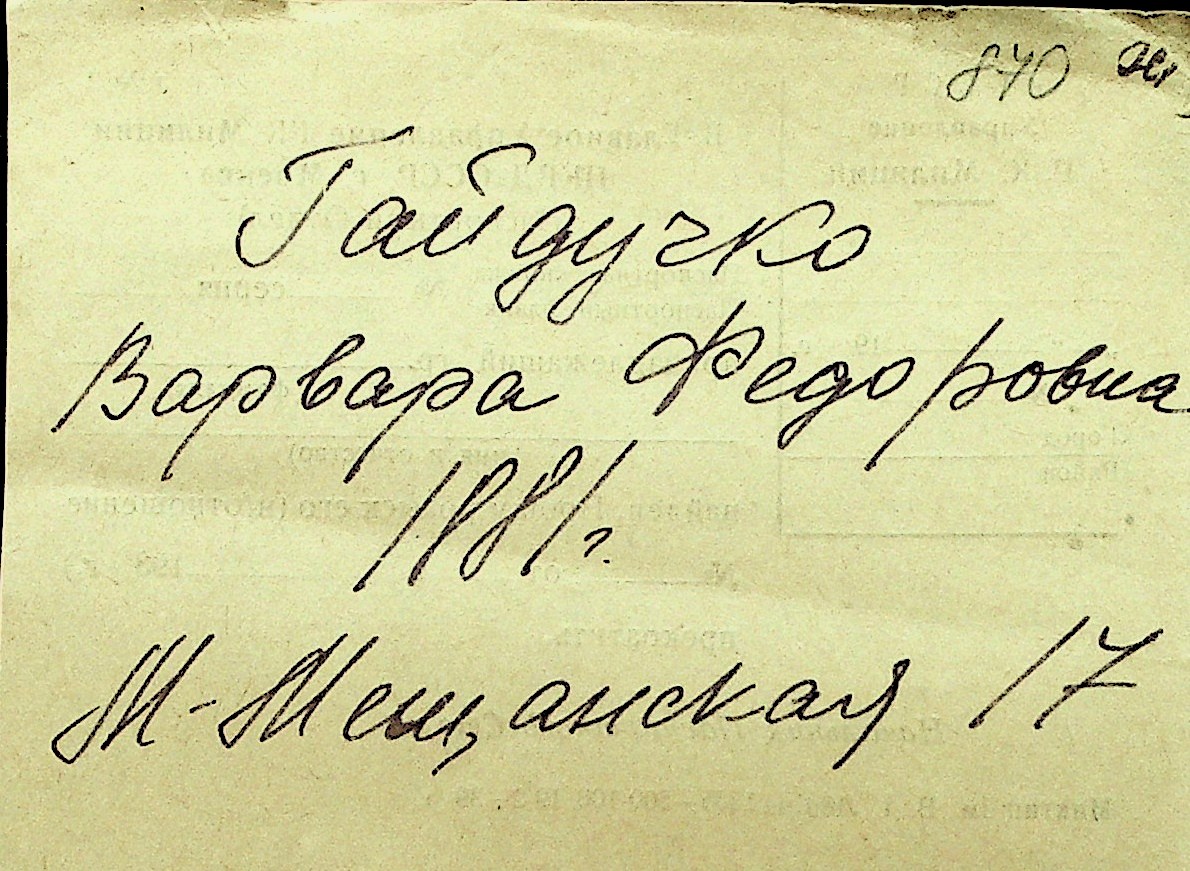 870
Гайдучко
Варвара Федоровна
1881г.
М-Мещанская 17